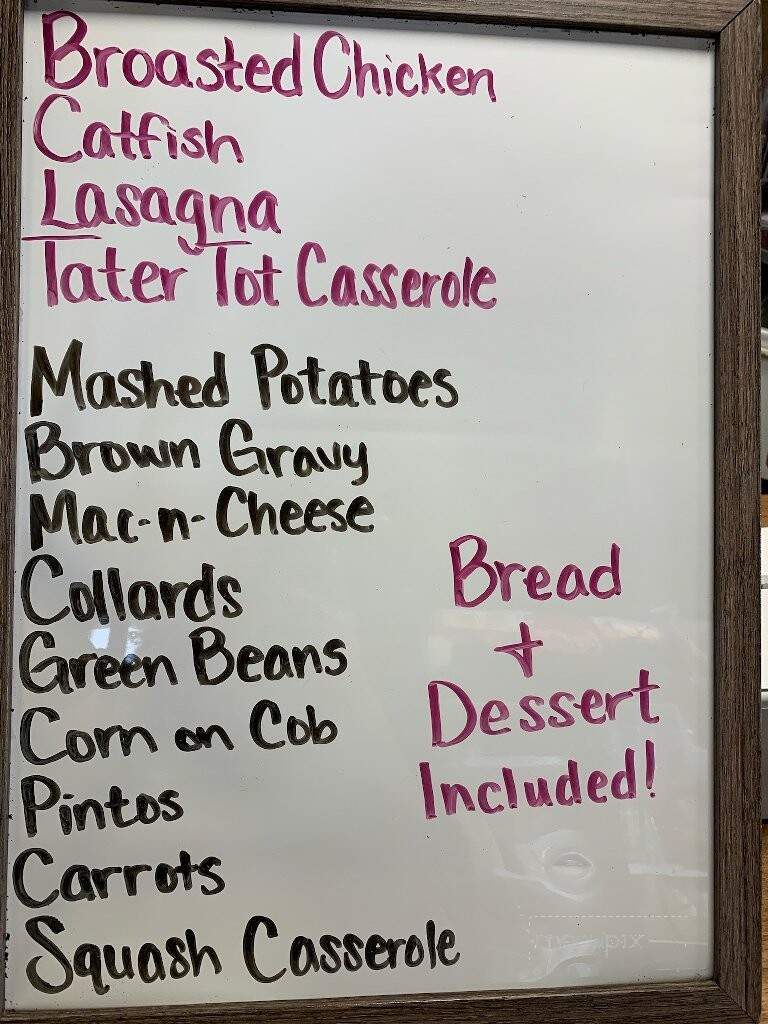 Broasted Chicken
Catfish
Lasagna
Tater Tot Casserole
Mashed Potatoes
Brown Gravy
Mac-n-Cheese
Collards
Green Beans
Corn on Cob
Pintos
Carrots
Squash Casserole
Bread
+
Dessert
Included!